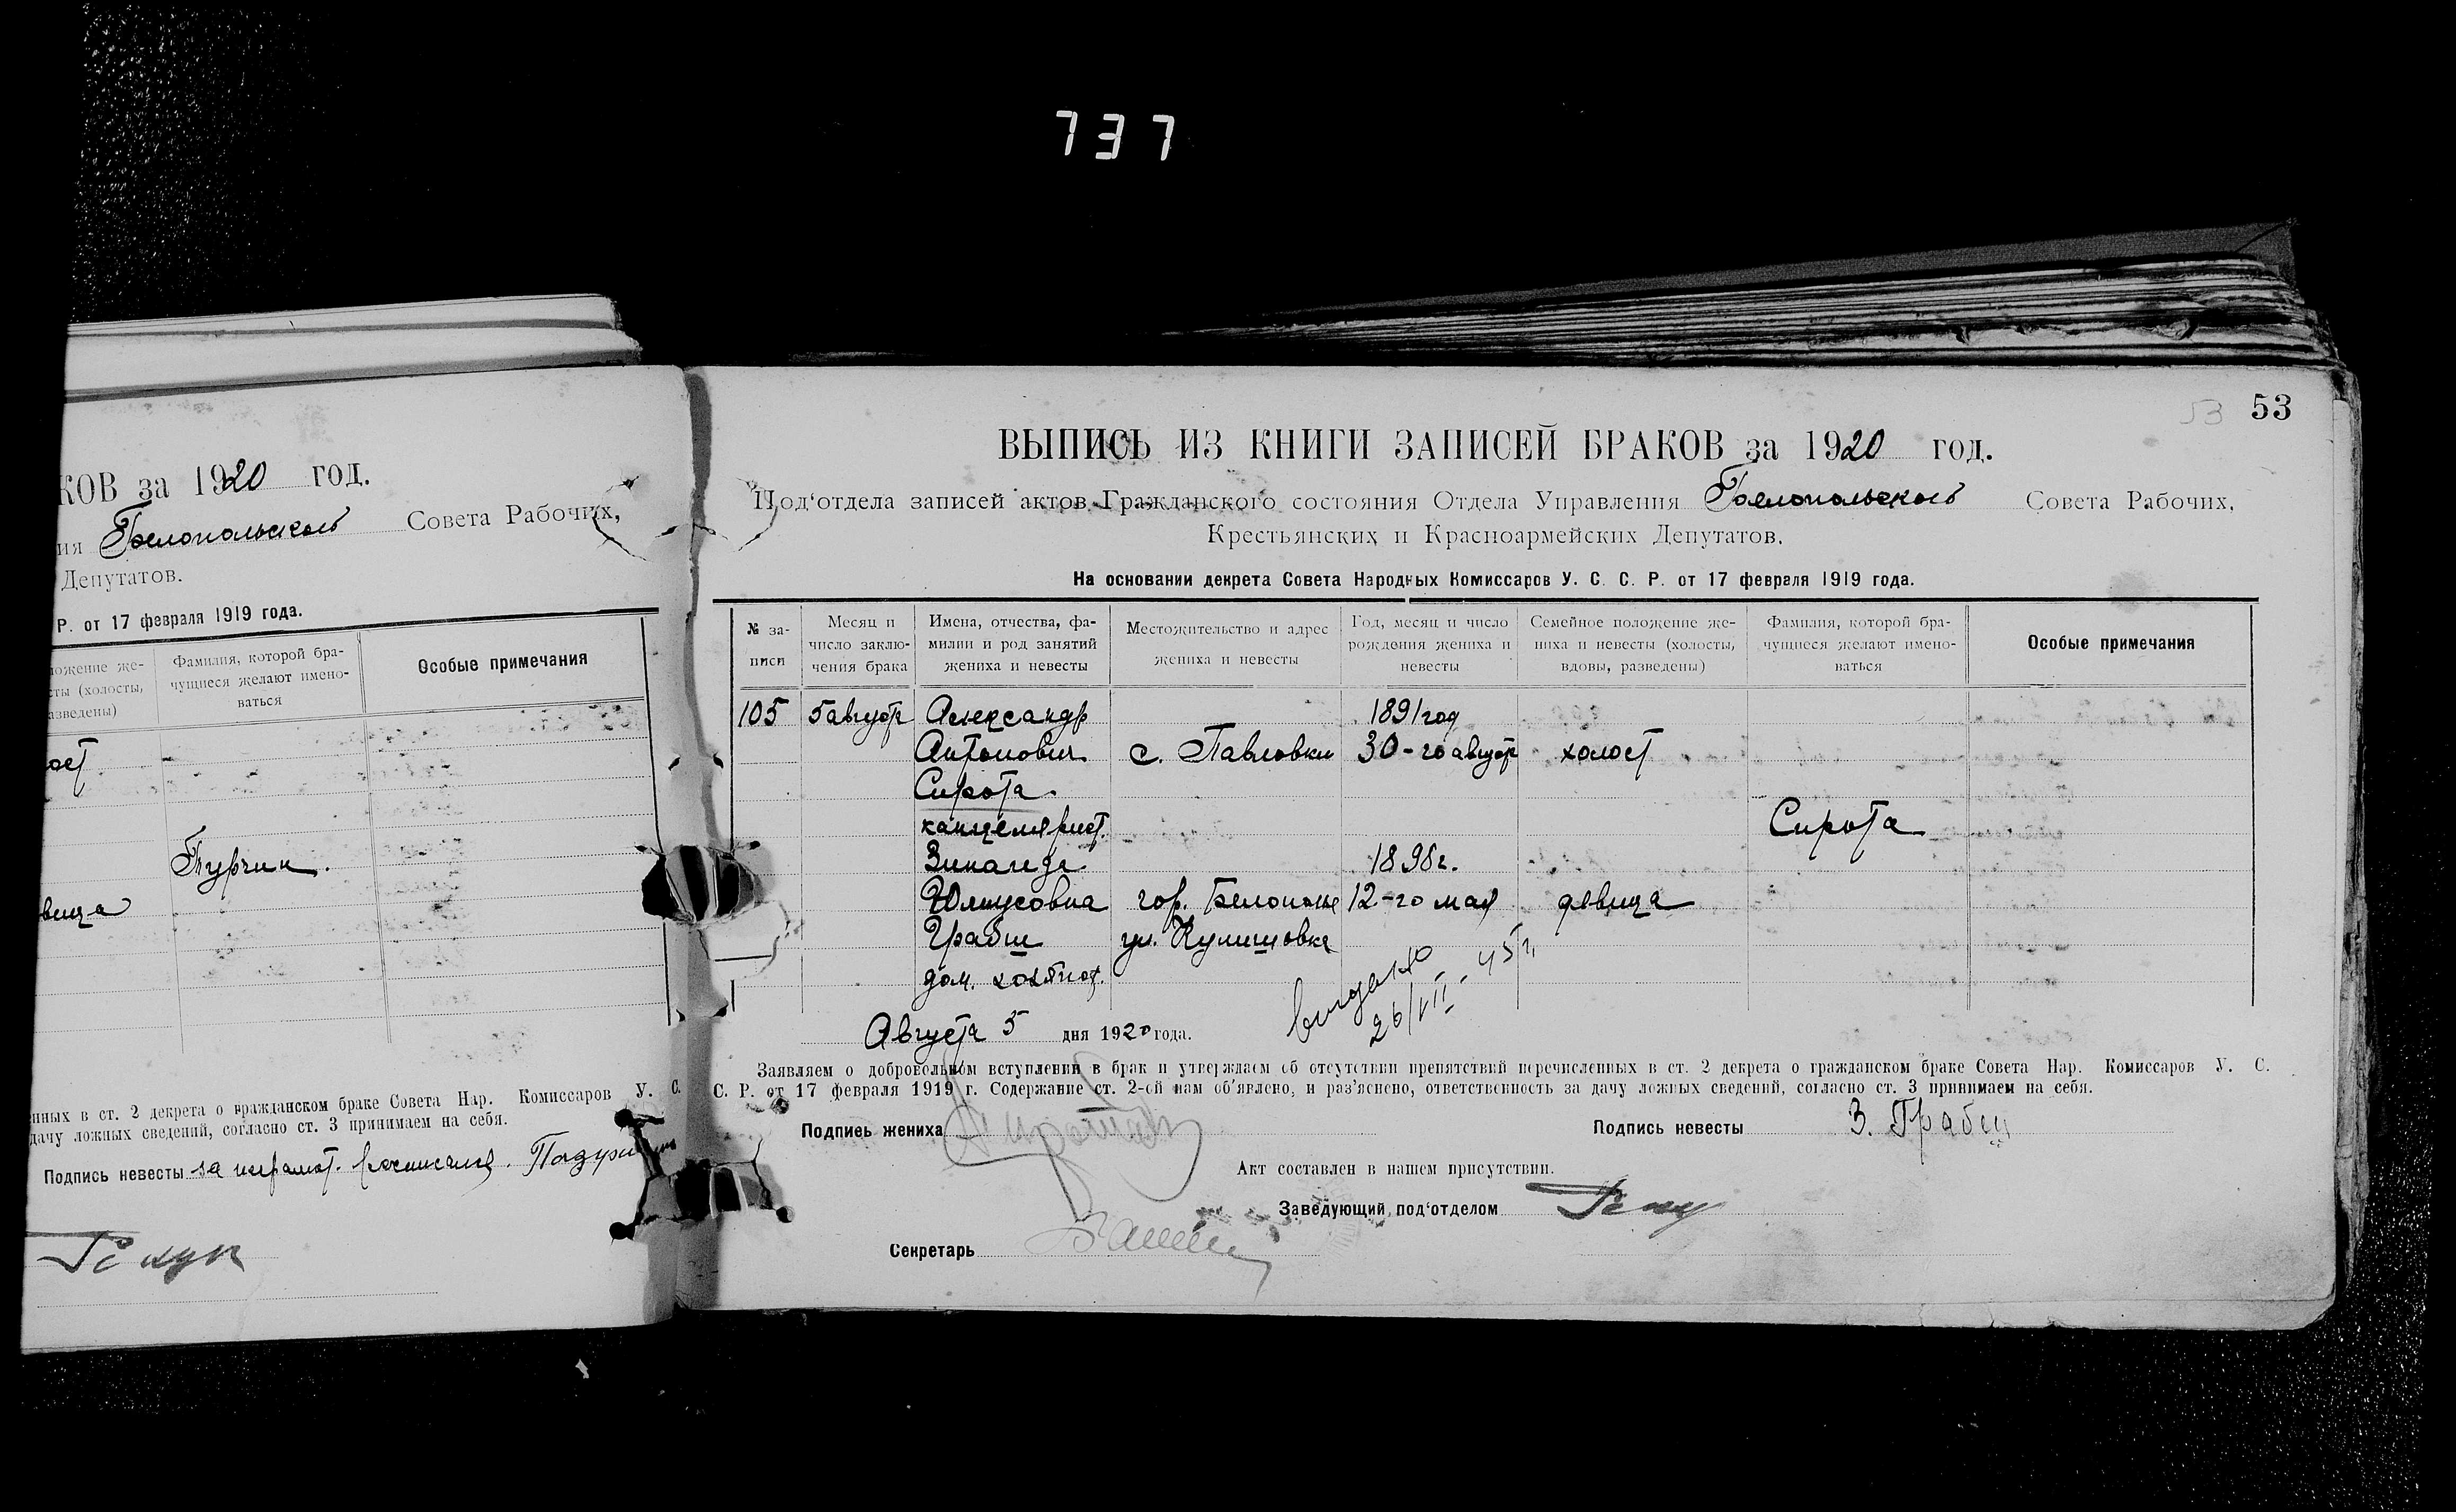 737
КОВ за 1920 год.
ия Белопольского Совета Рабочих,
Депутатов.
Р. от 17 февраля 1919 года.
ложение же-
сты (холосты,
азведены)
Фамилия, которой бра-
чущиеся желают имено-
ваться
Особые примечания
ост
вица
енных в ст. 2 декрета о гражданском браке Совета Нар. Комиссаров У. С.
дачу ложных сведений, согласно ст. 3 принимаем на себя.
Подпись невесты за неграмот. росписался
53 53
ВЫПИСЬ ИЗ КНИГИ ЗАПИСЕЙ БРАКОВ за 1920 год.
Под‘отдела записей актов Гражданского состояния Отдела Управления Белопольского Совета Рабочих,
Крестьянских и Красноармейских Депутатов.
На основании декрета Совета Народных Комиссаров У. С. С. Р. от 17 февраля 1919 года.
№ за-
писи
Месяц и
число заклю-
чения брака
Имена, отчества, фа-
милии и род занятий
жениха и невесты
Местожительство и адрес
жениха и невесты
Год, месяц и число
рождения жениха и
невесты
Семейное положение же-
ниха и невесты (холосты,
вдовы, разведены)
Фамилия, которой бра-
чущиеся желают имено-
ваться
Особые примечания
105 5 август Александр 1891 год
Антонович с. Павловки 30-го август холост
Сирота.
канцелярист. Сирота
Зинаида 1898 г.
Юлиусовна гор. Белополье 12-го мая девица
Грабш ул. Кулишовка
дом. хозяйнод.
видано
26/VII-45 г.
Августа 5 дня 1920 года.
Заявляем о добровольном вступлении в брак и утверждаем об отсутствии препятствий перечисленных в ст. 2 декрета о гражданском браке Совета Нар. Комиссаров У. С.
С. Р. от 17 февраля 1919 г. Содержание ст. 2-ой нам об‘явлено, и раз‘яснено, ответственность за дачу ложных сведений, согласно ст. 3 принимаем на себя.
Подпись жениха
Подпись невесты З. Грабш
Акт составлен в нашем присутствии.
Заведующий под‘отделом
Секретарь